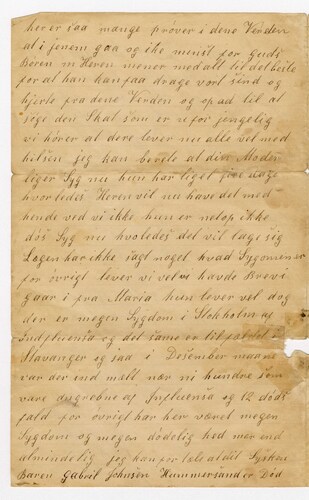 her er saa mange prøver i dene Verden
at i jenem gaa og ike minst for Guds
Børen m Heren mener med alt til det beste
for at han kan faa drage vort sind og
hjerte fra dene Verden og op ad til at
søge den Skat som er uforjengelig
vi hører at dere lever nu alle vel med
hilsen jeg kan berete at din Moder
liger Syg nu hun har liget fire dage
hvorledes Heren vil nu have det med
hende ved vi ikke hun er netop ikke
døs Syg nu hvoledes det vil tage sig
Lægen har ikke sagt noget hvad Sygomen er
for øvrigt lever vi vel vi havde Brev i
gaar i fra Maria hun lever vel dog
der er megen Sygdom i Stokholm af
Indfluensa og det samme er tilfældet i
Stavanger og saa i Desember maane
var der ind mælt nær ni hundre som
vare angrebne af Influensa og 12 døds
fald for øvrigt har her været megen
Sygdom og megen dødelig hed mer end
almindelig jeg kan fortæle at dit Sysken
Baren Gabriel Johnsen Hummersand er Død